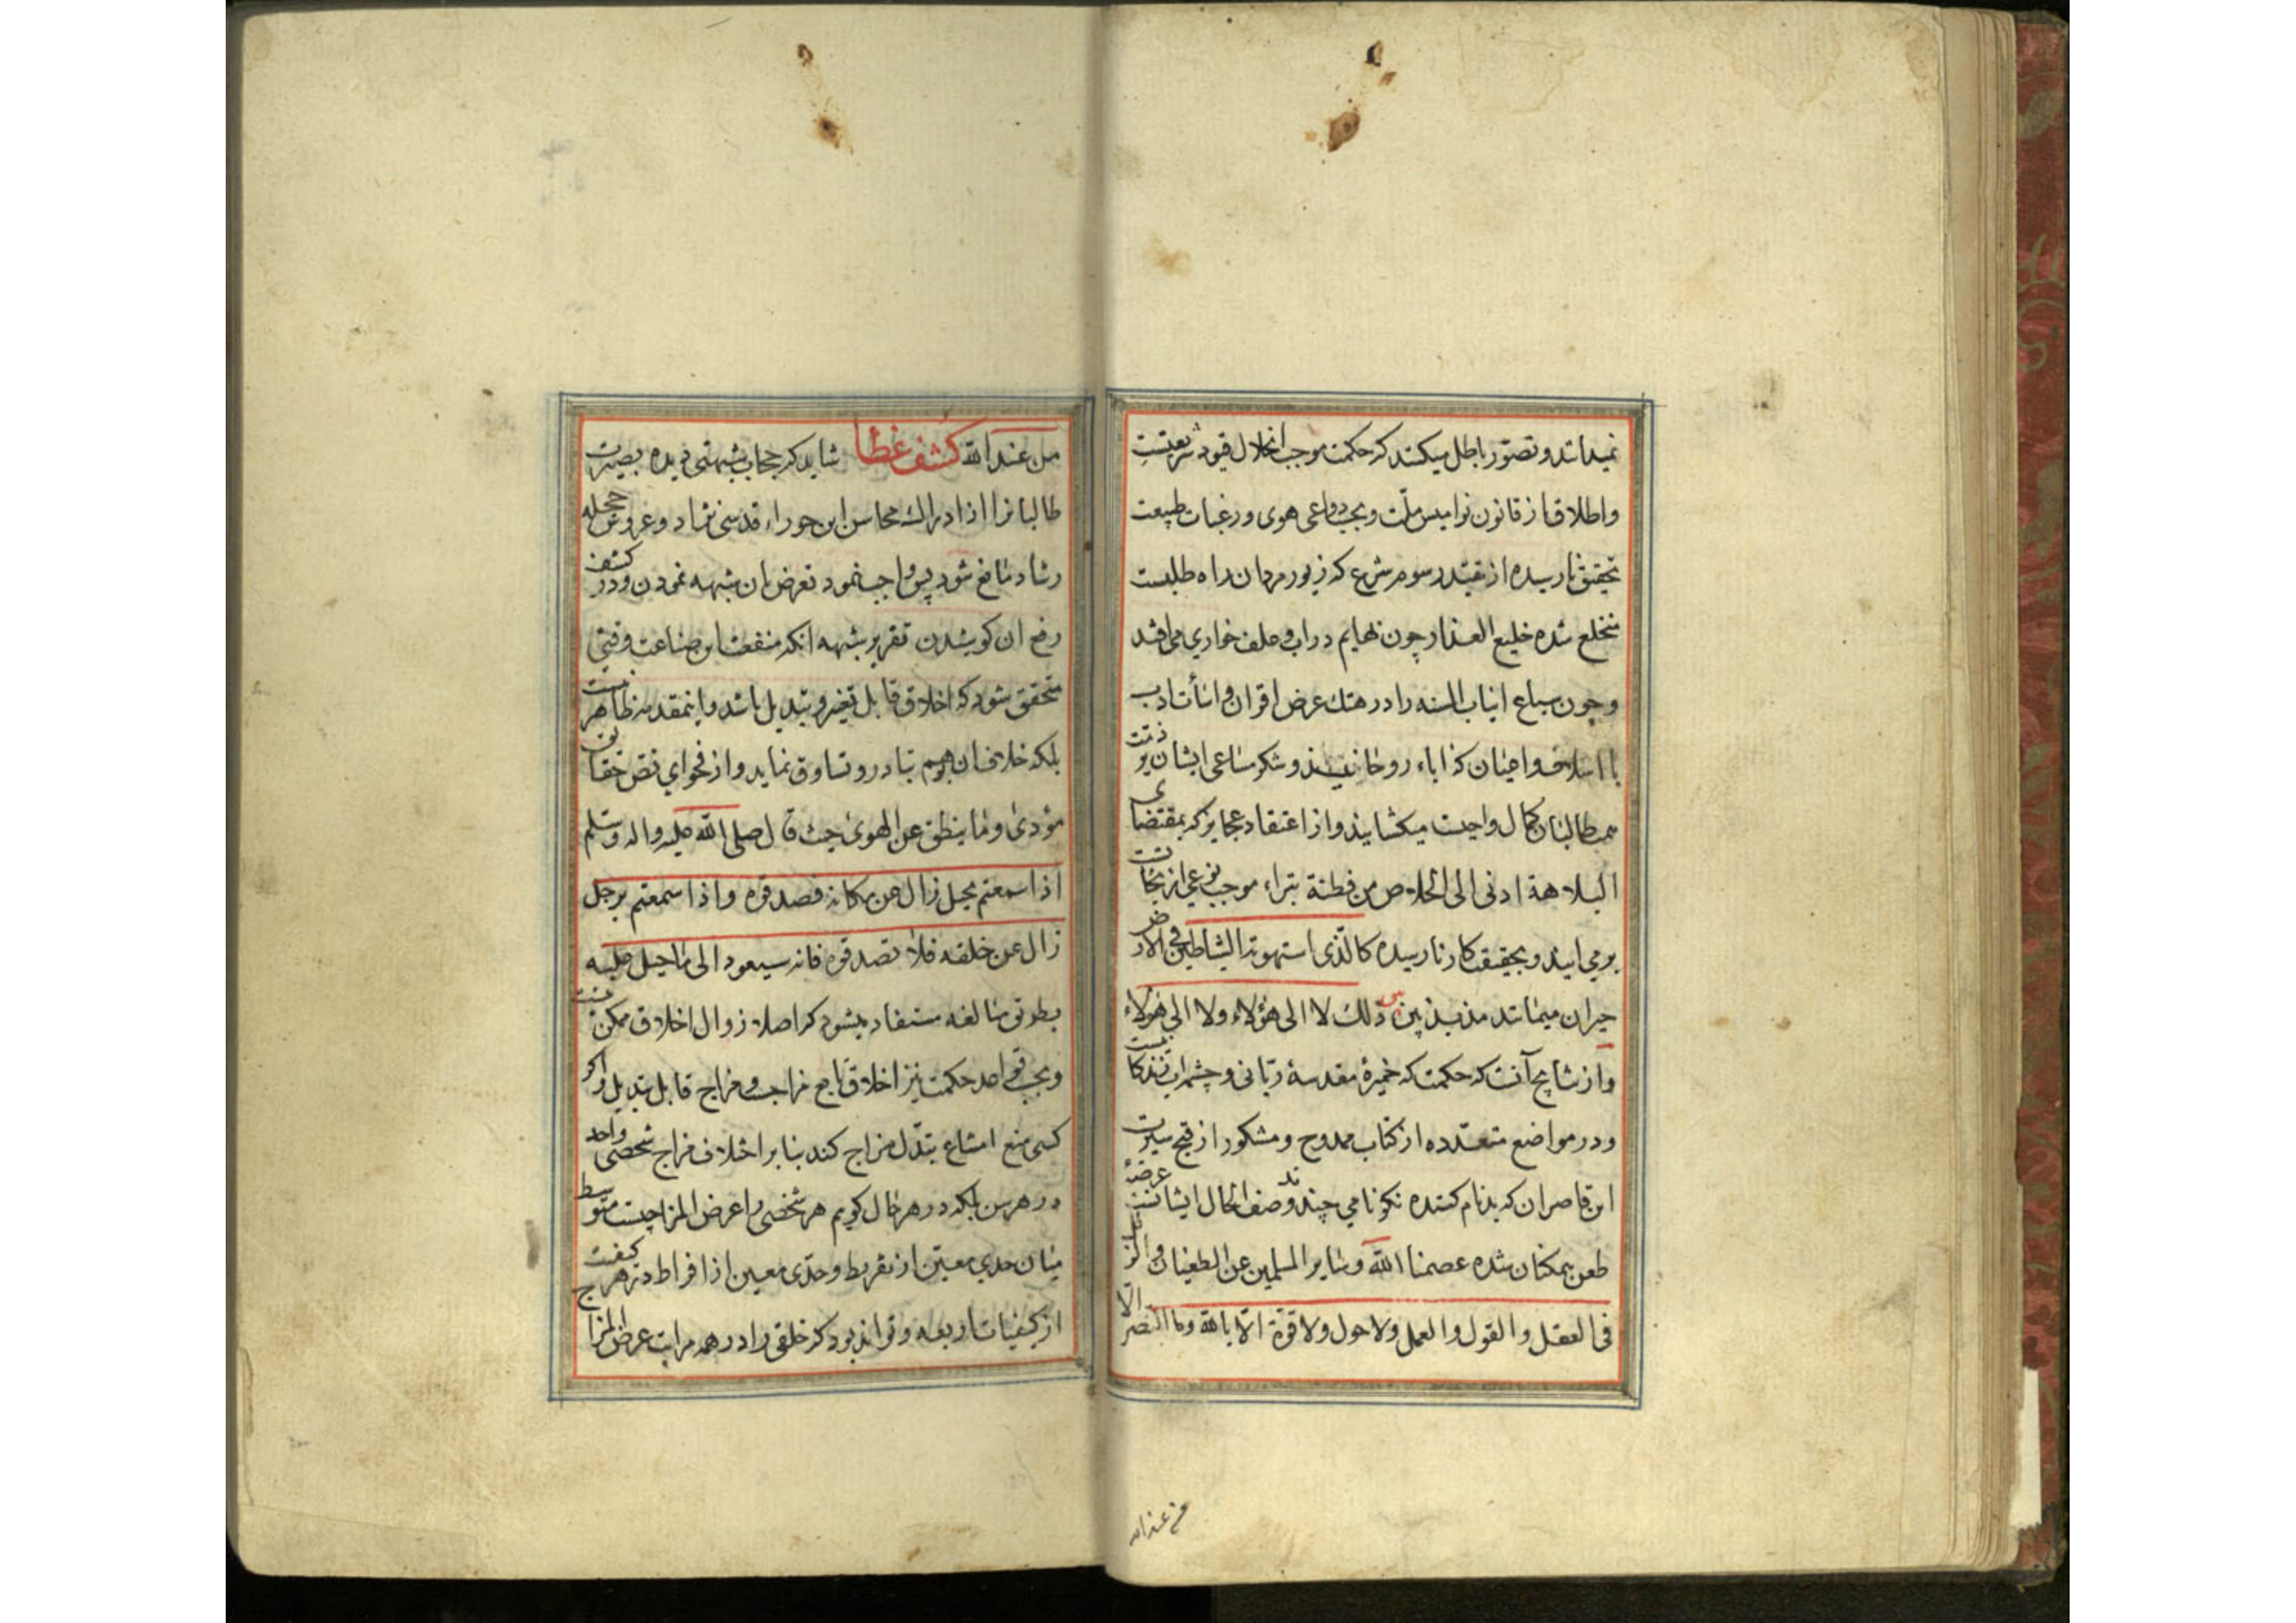 نمیدانند و تصوّر باطل میکنند که حکمت موجب انحلال قیود شریعتست
و اطلاق از قانون نوامیس ملّت و بحسب دواعی هوی و رغبات طبیعت
بتحقیق نارسیده از تقیّد رسوم شرع که زیور مردان راه طلبست
منخلع شده خلیع العذار چون بهایم در اب و علف خواری می افتد
و چون سباع انیاب السنه را در هتك عرض اقران و اسأت ادب
با اسلاف و اعیان که اباء روحانیند و شکر مساعی ایشان بر ذمّت
همت طالبان کمال واجبست میکشایند و از اعتقاد عجایز که بمقتضای
البلاهة ادنی الی الخلاص من فطنة بتراء موجب نوعی از نجات
بر می ایند و بحقیقت کار نارسیده کالّذی استهوته الشیاطین فی الارض
حیران میمانند مذبذبین بین ذلك لا الی هؤلاء ولا الی هؤلاء
و از نتایج آنست که حکمت که خمیرهٔ مقدسهٔ ربّانی و چشمه اب زندکانیست
و در مواضع متعدّده از کتاب ممدوح و مشکور از قبح سیرت
این قاصران که بدنام کننده نکونامی چند وصف الحال ایشانست عرضهٔ
طعن همکنان شده عصمنا الله و سایر المسلمین عن الطغیان و الزلل
فی العقل و القول و العمل ولا حول ولا قوّة الّا بالله وما النصر الّا
من عند الله
من عند الله کشف غطا شاید که حجاب شبهتی دیده بصیرت
طالبانرا از ادراك محاسن این حوراء قدسی نژاد و عروس حجله
رشاد مانع شود پس واجب نمود تعرض ان شبهه نمودن و در کشف
رفع ان کوشیدن تقریر شبهه انکه منفعت این صناعت وقتی
متحقق شود که اخلاق قابل تغیر و تبدیل باشد و اینمقدمه ظاهر نیست
بلکه خلاف ان بوهم تبادر و تساوق نماید و از فحوای نص حقایق
مؤدی وما ینطق عن الهوی حیث قال صلی الله علیه واله وسلم
اذا سمعتم بجبل زال عن مکانه فصدقوه واذا سمعتم برجل
زال عن خلقه فلا تصدقوه فانه سیعود الی ما جبل علیه
بطریق مبالغه مستفاد میشود که اصلا زوال اخلاق ممکن نیست
و بحسب قواعد حکمت نیز اخلاق تابع مزاجست و مزاج قابل تبدیل و اکر
کسی منع امتناع تبدّل مزاج کند بنابر اختلاف مزاج شخصی واحد
در هر سن بلکه در هر حال کویم هر شخصی را عرض المزاجیست متوسط
میان حدی معین از تفریط و حدّی معین از افراط در هر کیفیت
از کیفیات اربعه و تواند بود که خلقی را در همه مراتب عرض المزاج